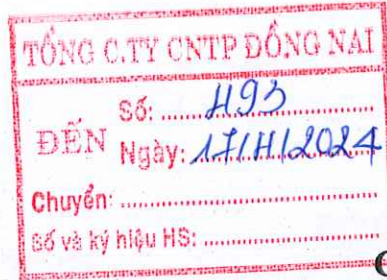 TỔNG C.TY CNTP ĐỒNG NAI
ĐẾN
Số: 493
Ngày: 17/4/2024
Chuyển:
Số và ký hiệu HS: